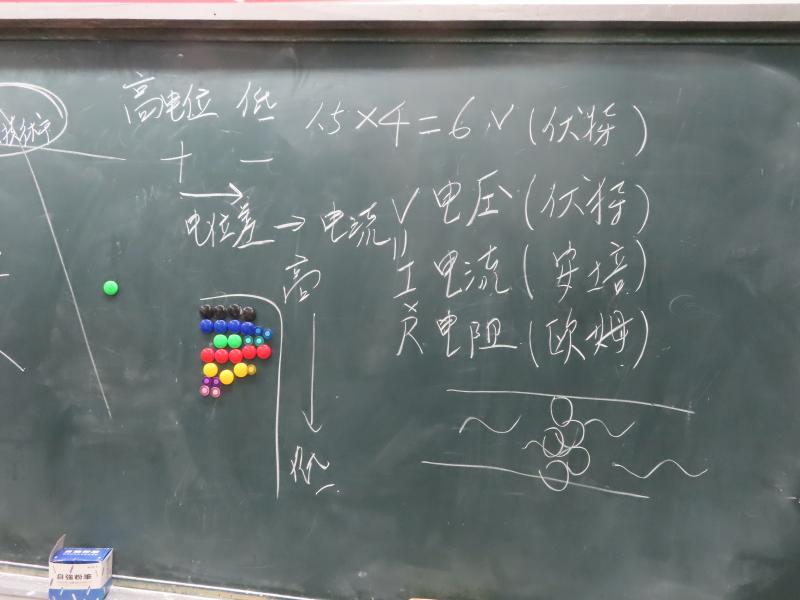 技術
高电位 低
1.5×4=6V(伏特)
+ −
→
电位差→电流
V 电压(伏特)
=
I 电流(安培)
×
R 电阻(欧姆)
高
↓
低
自強粉筆